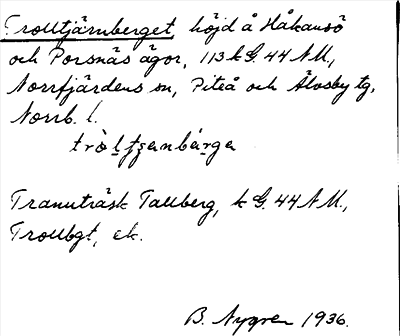 Trolltjärnberget höjd å Håkansö
och Porsnäs ägor, 113 k G. 44 N.M.,
Norrfjärdens sn, Piteå och Älvsby tg,
Norrb. l.
Tranuträsk Tallberg, k G. 44 N.M.,
Trollbgt, ek.
B. Nygren 1936.